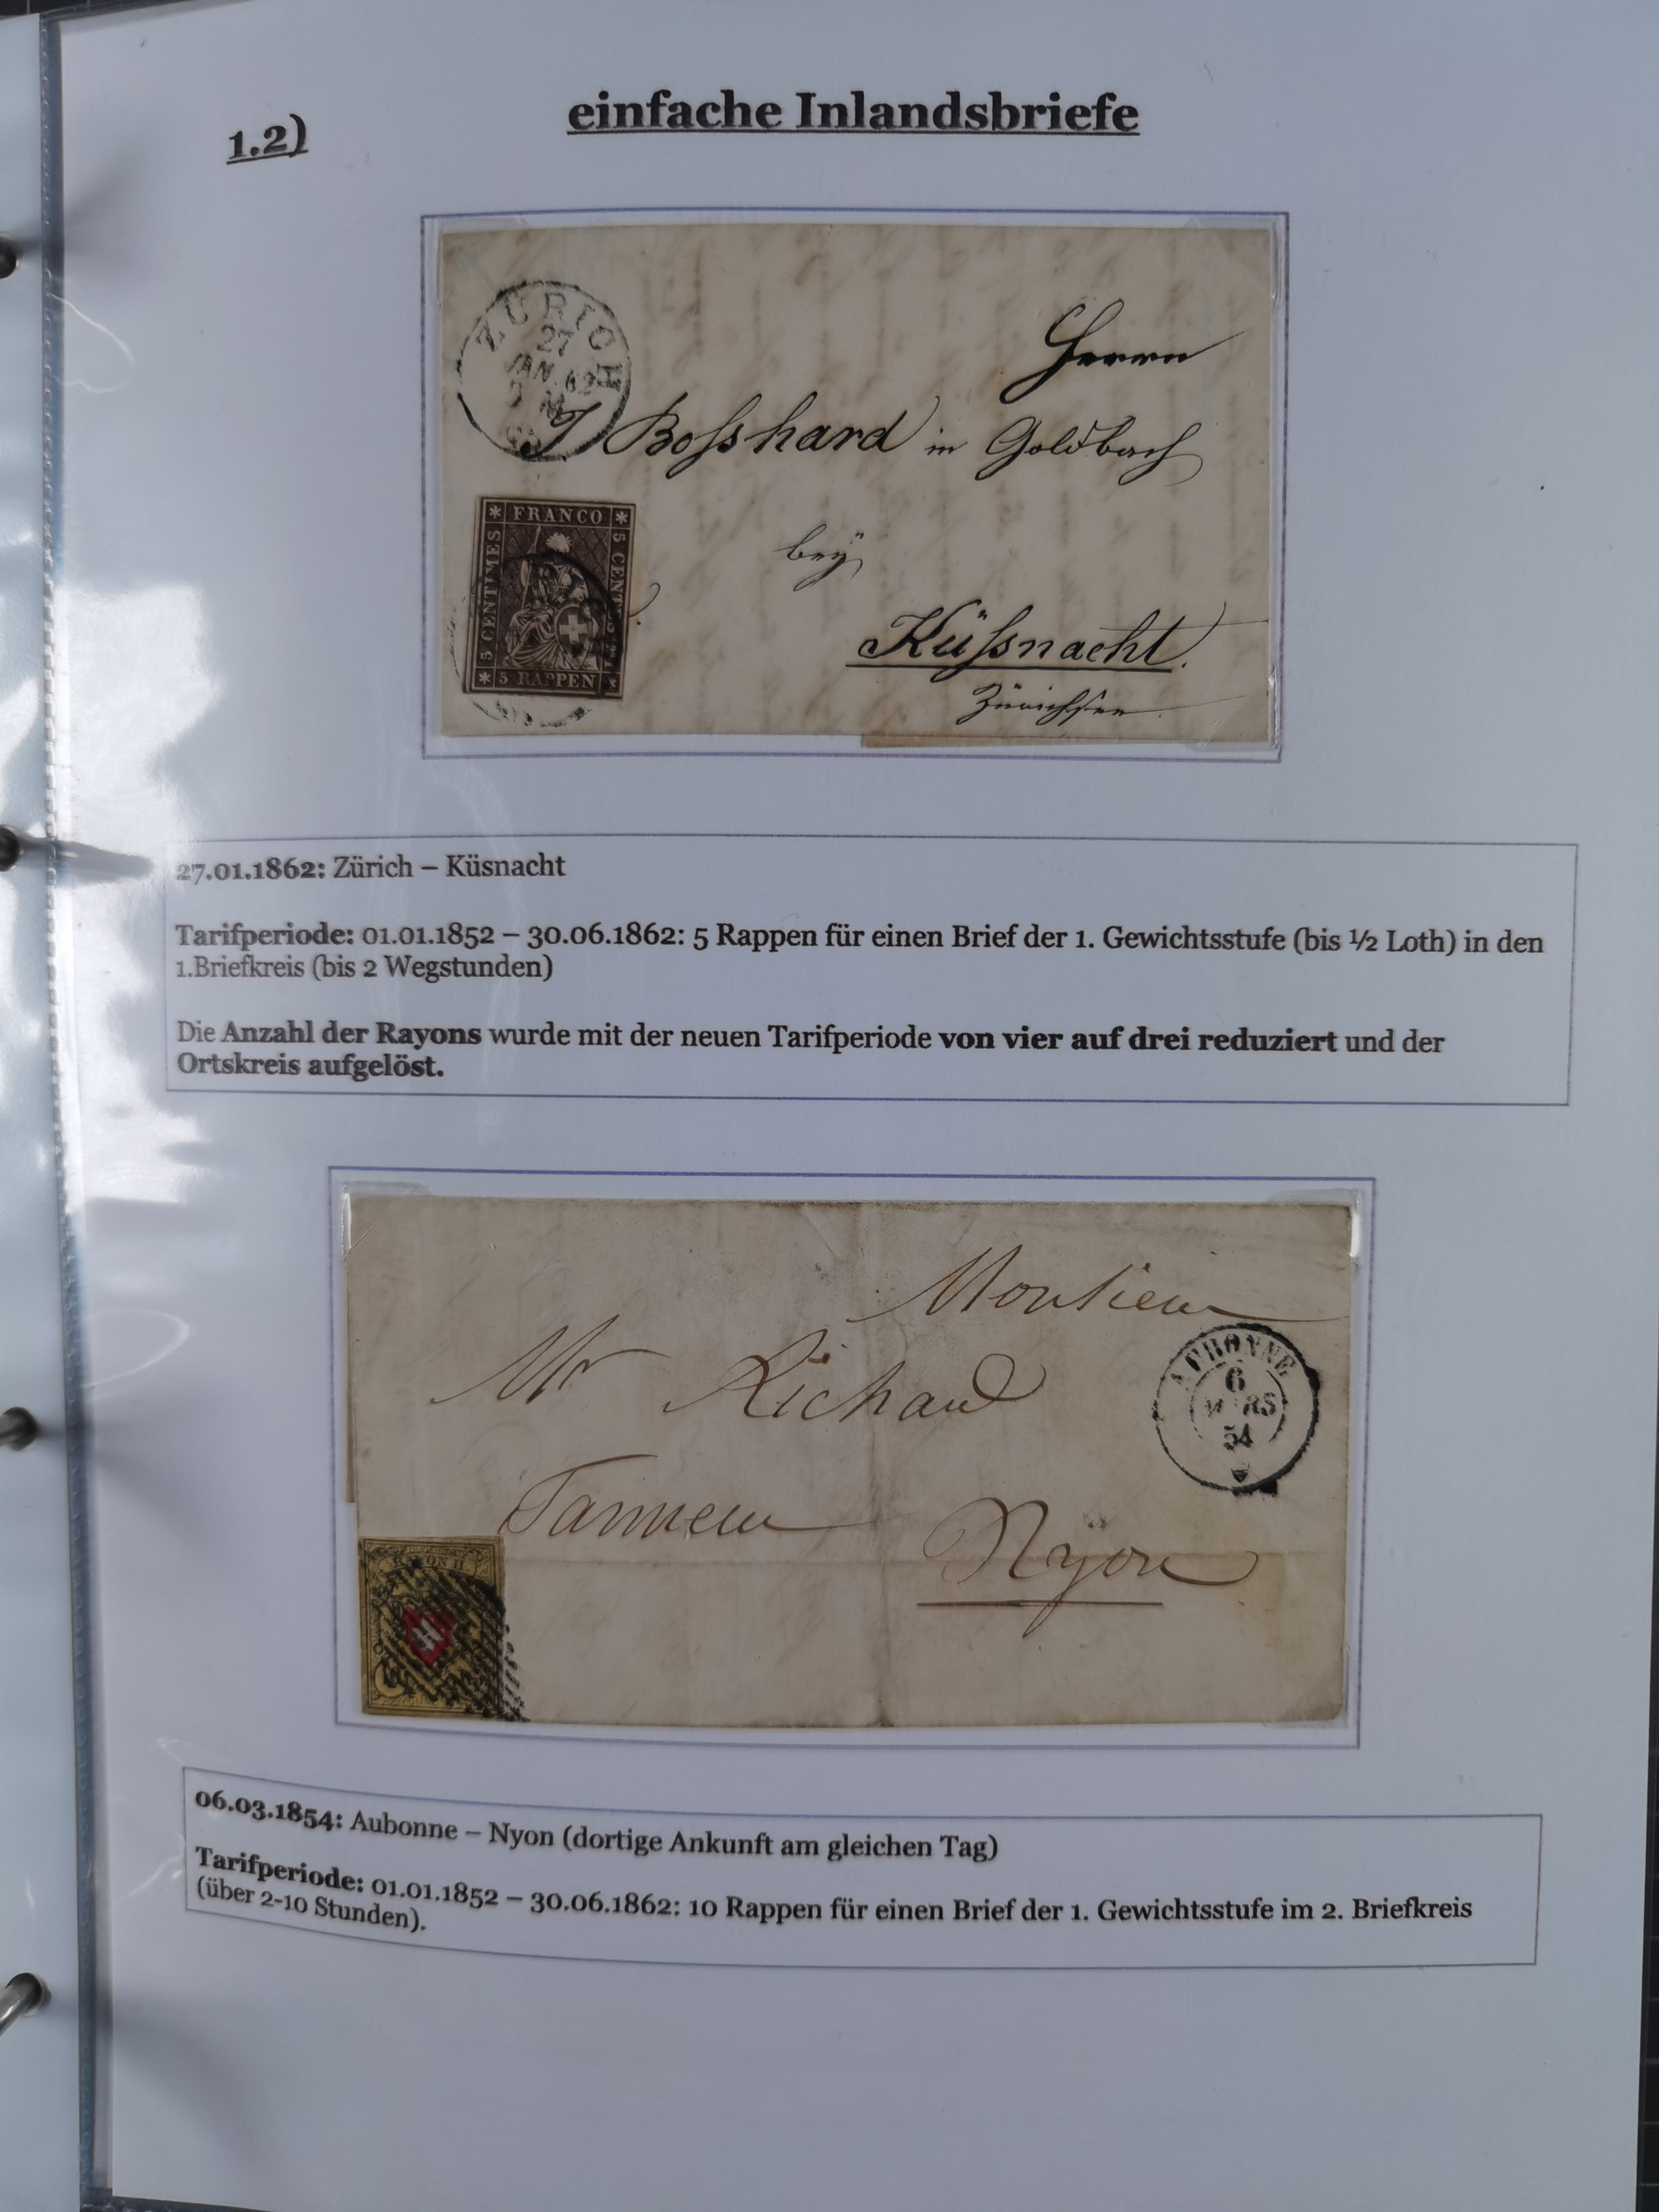 1.2)
einfache Inlandsbriefe
ZÜRICH
27
JAN. 62
Herrn
J Boſshard in Goldbach
beÿ
Küſsnacht.
Zürichsee
FRANCO
5 CENTIMES
5 RAPPEN
27.01.1862: Zürich – Küsnacht
Tarifperiode: 01.01.1852 – 30.06.1862: 5 Rappen für einen Brief der 1. Gewichtsstufe (bis ½ Loth) in den
1.Briefkreis (bis 2 Wegstunden)
Die Anzahl der Rayons wurde mit der neuen Tarifperiode von vier auf drei reduziert und der
Ortskreis aufgelöst.
Monsieur
Mr Richard
AUBONNE
6
MARS
54
Tanneur
Nÿon
RAYON II
06.03.1854: Aubonne – Nyon (dortige Ankunft am gleichen Tag)
Tarifperiode: 01.01.1852 – 30.06.1862: 10 Rappen für einen Brief der 1. Gewichtsstufe im 2. Briefkreis
(über 2-10 Stunden).